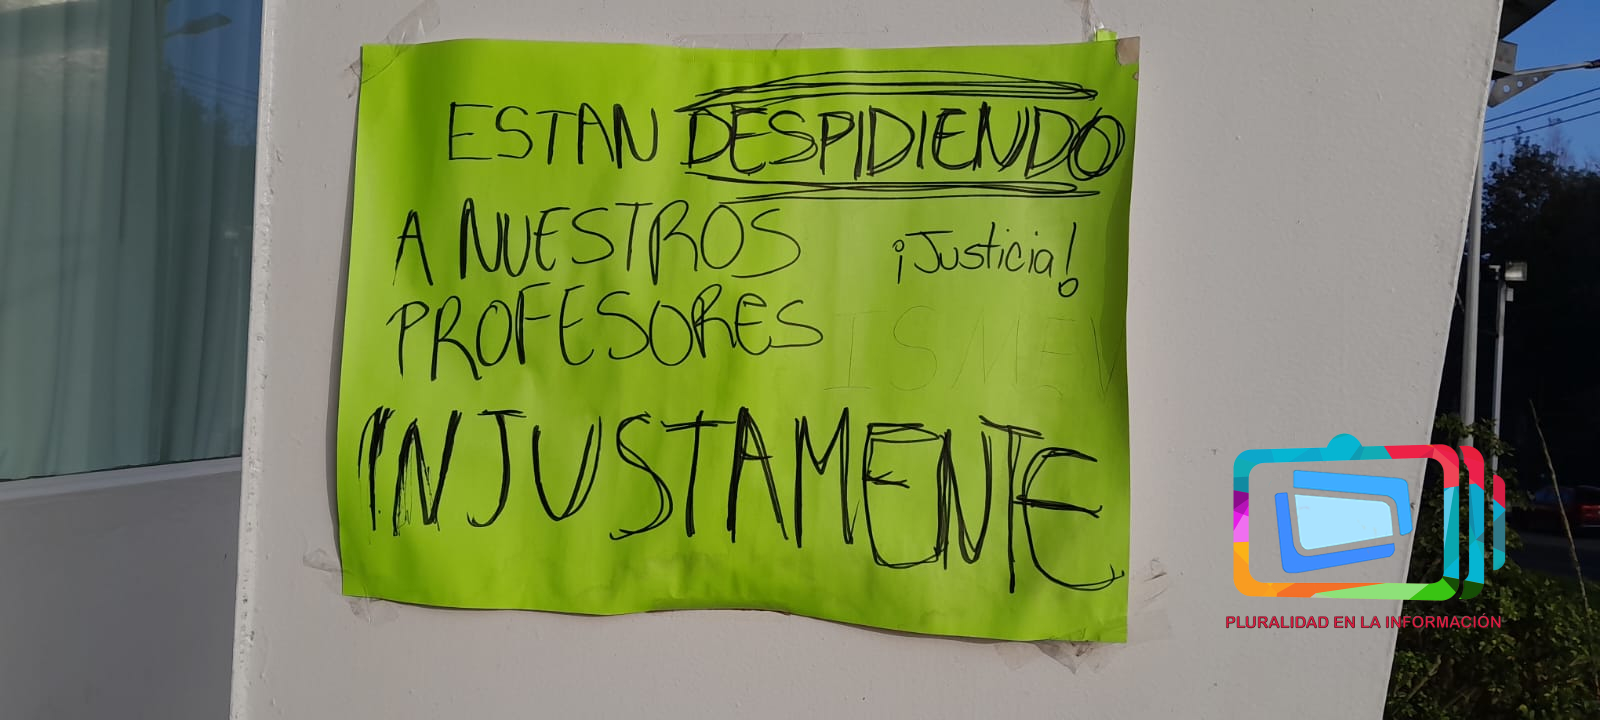 ESTAN DESPIDIENDO
A NUESTROS
¡Justicia!
PROFESORES
INJUSTAMENTE
PLURALIDAD EN LA INFORMACIÓN